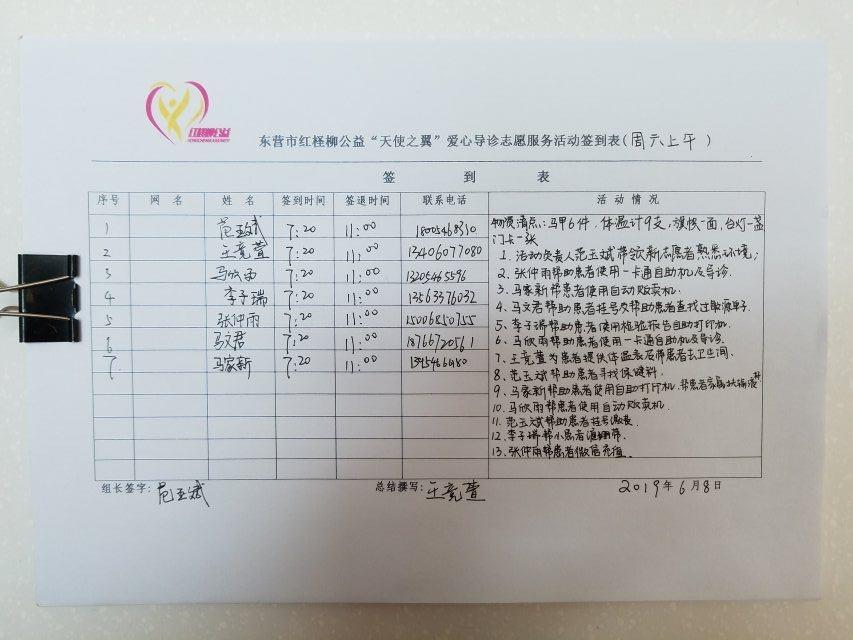 红柽柳公益
东营市红柽柳公益“天使之翼”爱心导诊志愿服务活动签到表(周六上午)
签 到 表
序号 网 名 姓 名 签到时间 签退时间 联系电话 活 动 情 况
1 范玉斌 7:20 11:00
2 王竞萱 7:20 11:00 13406077080
3 马欣雨 7:20 11:00 13205465596
4 李子瑞 7:20 11:00 13563376032
5 张仲雨 7:20 11:00 15006850755
6 马文君 7:20 11:00 18766720561
7 马家新 7:20 11:00
物资清点:马甲6件,体温计9支,旗帜一面,台灯一盏
门卡一张
1. 活动负责人范玉斌带领新志愿者熟悉环境;
2. 张仲雨帮助患者使用一卡通自助机及导诊.
3. 马家新帮患者使用自动贩卖机.
4. 马文君帮助患者挂号及帮助患者查找过敏源单子.
5. 李子瑞帮助患者使用检验报告自助打印机.
6. 马欣雨帮助患者使用一卡通自助机及导诊.
7. 王竞萱为患者提供体温表及带患者去卫生间.
8. 范玉斌帮助患者寻找保健科.
9. 马家新帮患者使用自助打印机.帮患者家属扶输液杆
10. 马欣雨帮患者使用自动贩卖机.
11. 范玉斌帮助患者挂号缴费.
12. 李子瑞帮小患者 绷带.
13. 张仲雨帮患者微信充值.
组长签字: 范玉斌 总结撰写: 王竞萱 2019年6月8日